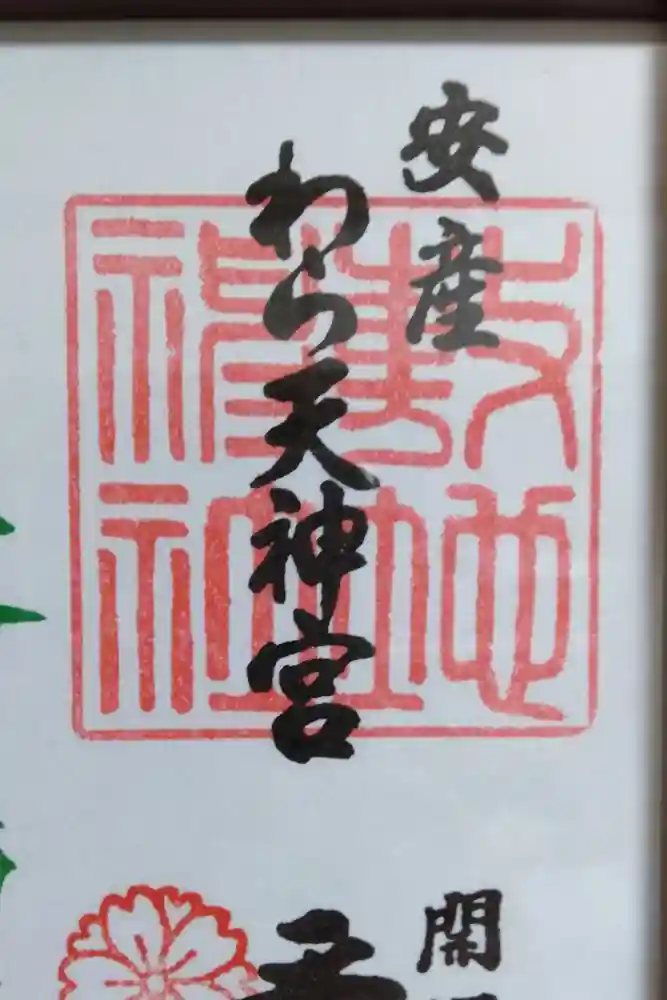 安産
わら天神宮
敷地
神社
開